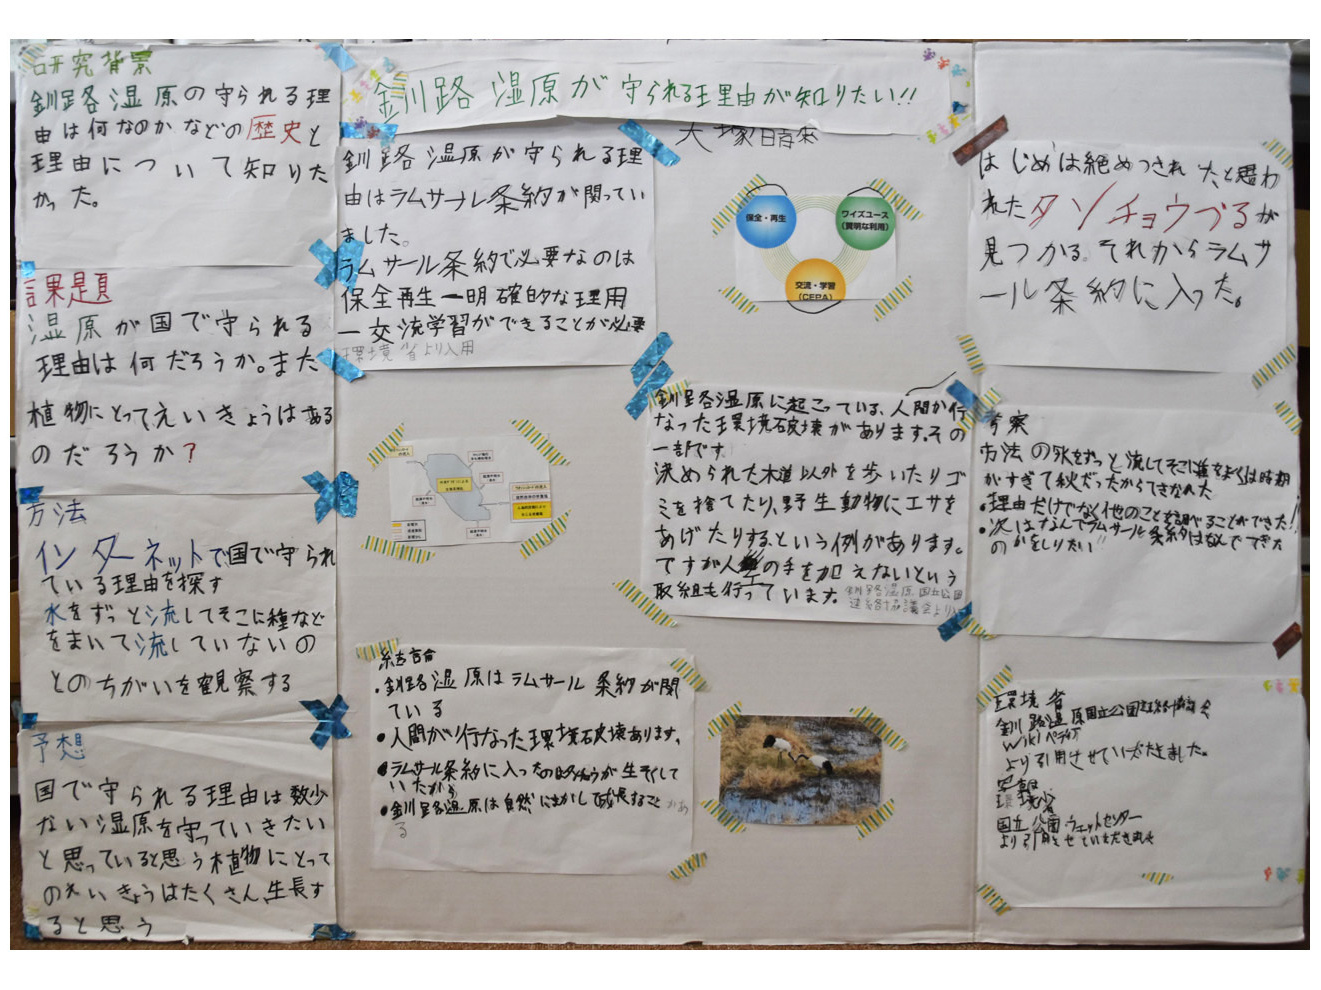 釧路湿原が守られる理由が知りたい!!
研究背景
釧路湿原の守られる理
由は何なのかなどの歴史と
理由について知りた
かった。
課題
湿原が国で守られる
理由は何だろうか。また
植物にとってえいきょうはある
のだろうか?
方法
インターネットで国で守られ
ている理由を探す
水をずっと流してそこに種など
をまいて流していないの
とのちがいを観察する
予想
国で守られる理由は数少
ない湿原を守っていきたい
と思っていると思う植物にとって
のえいきょうはたくさん生長す
ると思う
釧路湿原が守られる理
由はラムサール条約が関ってい
ました。
ラムサール条約で必要なのは
保全再生ー明確的な理用
ー交流学習ができることが必要
環境省より入用
保全・再生
ワイズユース
(賢明な利用)
交流・学習
(CEPA)
釧路湿原に起こっている、人間か行
なった環境破壊があります。その
一部です
決められた木道以外を歩いたりゴ
ミを捨てたり、野生動物にエサを
あげたりする、という例があります。
ですが人の手を加えないという
取組も行っています。
釧路湿原国立公園
連絡協議会より
結言
・釧路湿原はラムサール条約が関
ている
・人間が行なった環境破壊あります。
・ラムサール条約に入ったのは
・釧路湿原は自然にまかして成長すること
がある
はじめは絶めつされたと思わ
れたタンチョウづるが
見つかる。それからラムサ
ール条約に入った。
考察
方法の水をずっと流してそこに種をまくは時期
がすぎて秋だったからできなかった
・理由だけでなく他のことを調べることができた!!
・次はなんでラムサール条約はなんでできた
のかをしりたい!!
環境省
釧路湿原国立公園連絡協議会
Wikiペディア
より引用させていただきました。
環境省
国立公園・ウェットセンター
より引用させていただきました